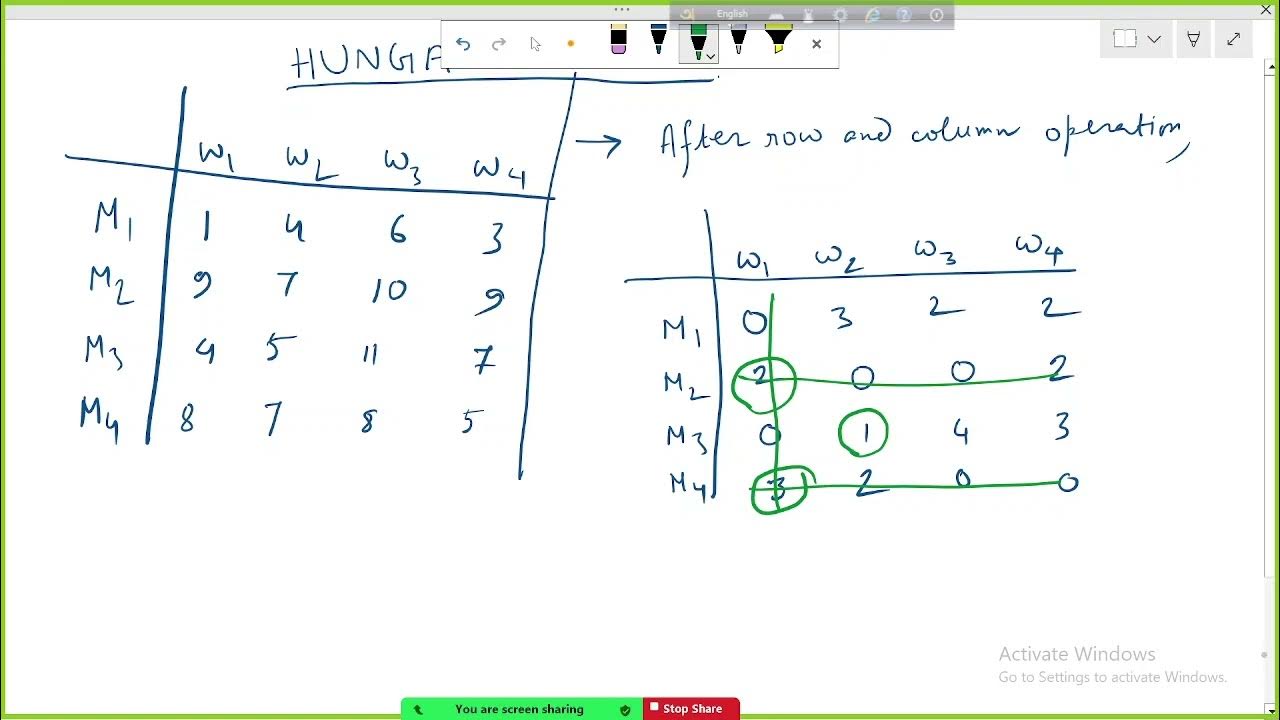 English
HUNGA
W1 W2 W3 W4
M1 1 4 6 3
M2 9 7 10 9
M3 4 5 11 7
M4 8 7 8 5
→ After row and column operation,
W1 W2 W3 W4
M1 0 3 2 2
M2 2 0 0 2
M3 0 1 4 3
M4 3 2 0 0
Activate Windows
Go to Settings to activate Windows.
You are screen sharing
Stop Share